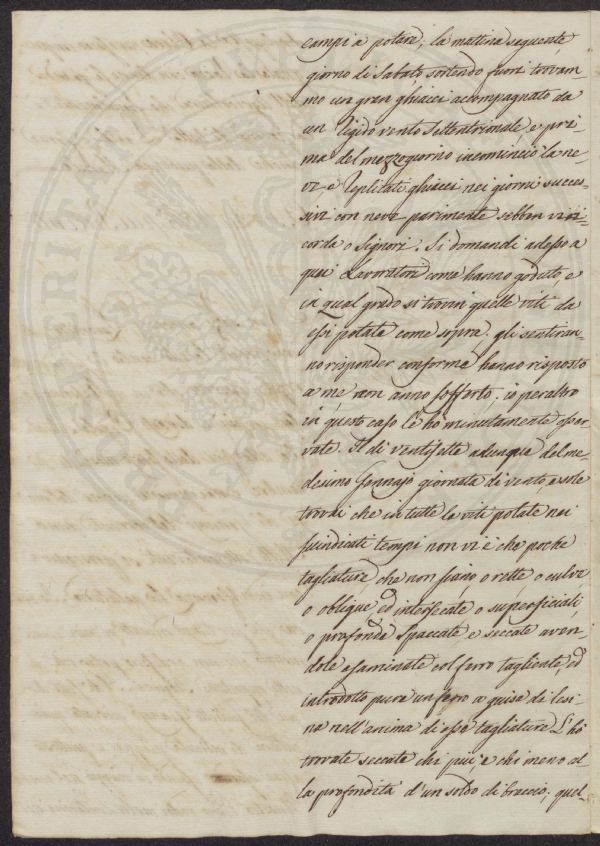 campi a potare; la mattina seguente
giorno di Sabato sortendo fuori trovam-
mo un gran ghiacci accompagnato da
un Rigido vento Settentrionale, e pri-
ma del mezzogiorno incominciò la ne-
ve e Replicati ghiacci nei giorni succes-
sivi con neve parimente sebben vi ri-
corda o Signori. Si domandi adesso a
quei Lavoratori come hanno goduto, e
in qual grado si trovin quelle viti da
essi potate come sopra. gli sentiran-
no risponder conforme hanno risposto
a me non anno sofferto; io peraltro
in questo caso le hò minutamente osser-
vate. Il dì ventisette adunque del me-
desimo Gennajo giornata di vento, e sole
trovai che in tutte le viti potate nei
suindicati tempi non vi è che poche
tagliature che non siano, o rette, o curve
o oblique, ed intersecate o superficiali
o profonde spaccate, e seccate aven-
dole esaminate col ferro tagliente, ed
introdotto pure un ferro a guisa di lesi-
na nell'anima di esse tagliature L'hò
trovate seccate chi più, e chi meno al-
la profondità d'un soldo di braccio; quel-